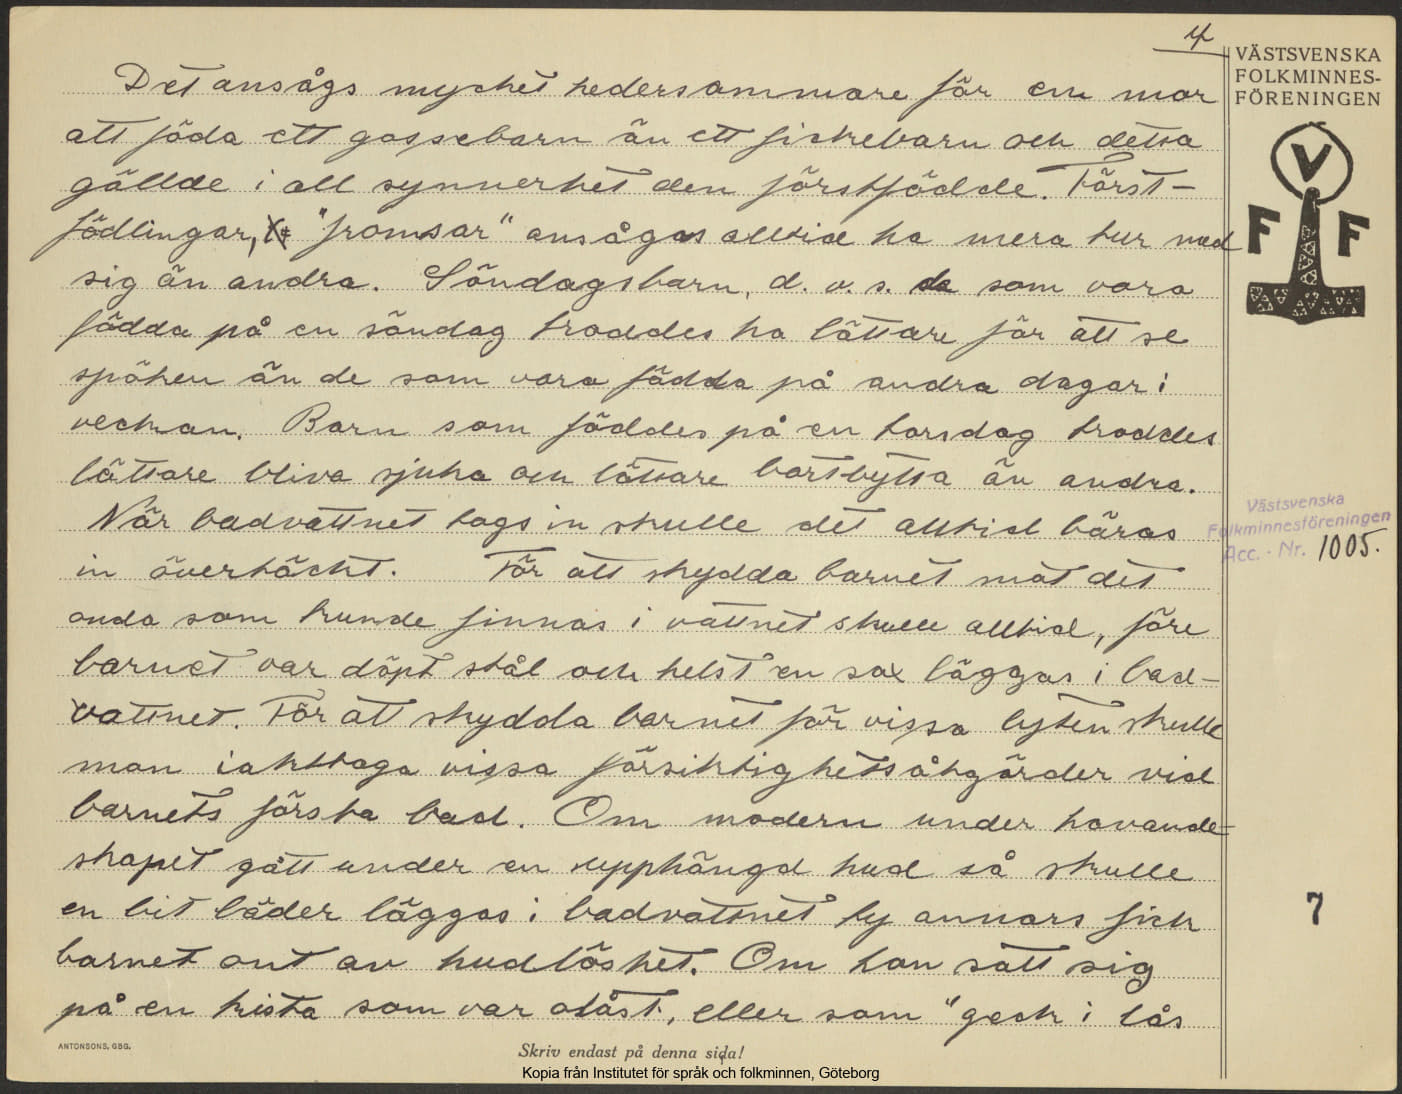 4
VÄSTSVENSKA
FOLKMINNES-
FÖRENINGEN
V
F F
Det ansågs mycket hedersammare för en mor
att föda ett gossebarn än ett fickebarn och detta
gällde i all synnerhet den förstfödde. Först-
födlingar, "fromsar" ansågos alltid ha mera tur med
sig än andra. Söndagsbarn, d. v. s. de som voro
födda på en söndag troddes ha lättare för att se
spöken än de som voro födda på andra dagar i
veckan. Barn som föddes på en torsdag troddes
lättare bliva sjuka och lättare bortbytta än andra.
När badvattnet togs in skulle det alltid bäras
in övertäckt. För att skydda barnet mot det
onda som kunde finnas i vattnet skulle alltid, före
barnet var döpt stål och helst en sax läggas i bad-
vattnet. För att skydda barnet för vissa lyten skulle
man iakttaga vissa försiktighetsåtgärder vid
barnets första bad. Om modern under havande-
skapet gått under en upphängd hud så skulle
en bit läder läggas i badvattnet ty annars fick
barnet ont av hudlöshet. Om hon satt sig
på en kista som var olåst, eller som "geck i lås
Västsvenska
Folkminnesföreningen
Acc. - Nr. 1005.
7
ANTONSONS, GBG.
Skriv endast på denna sida!
Kopia från Institutet för språk och folkminnen, Göteborg